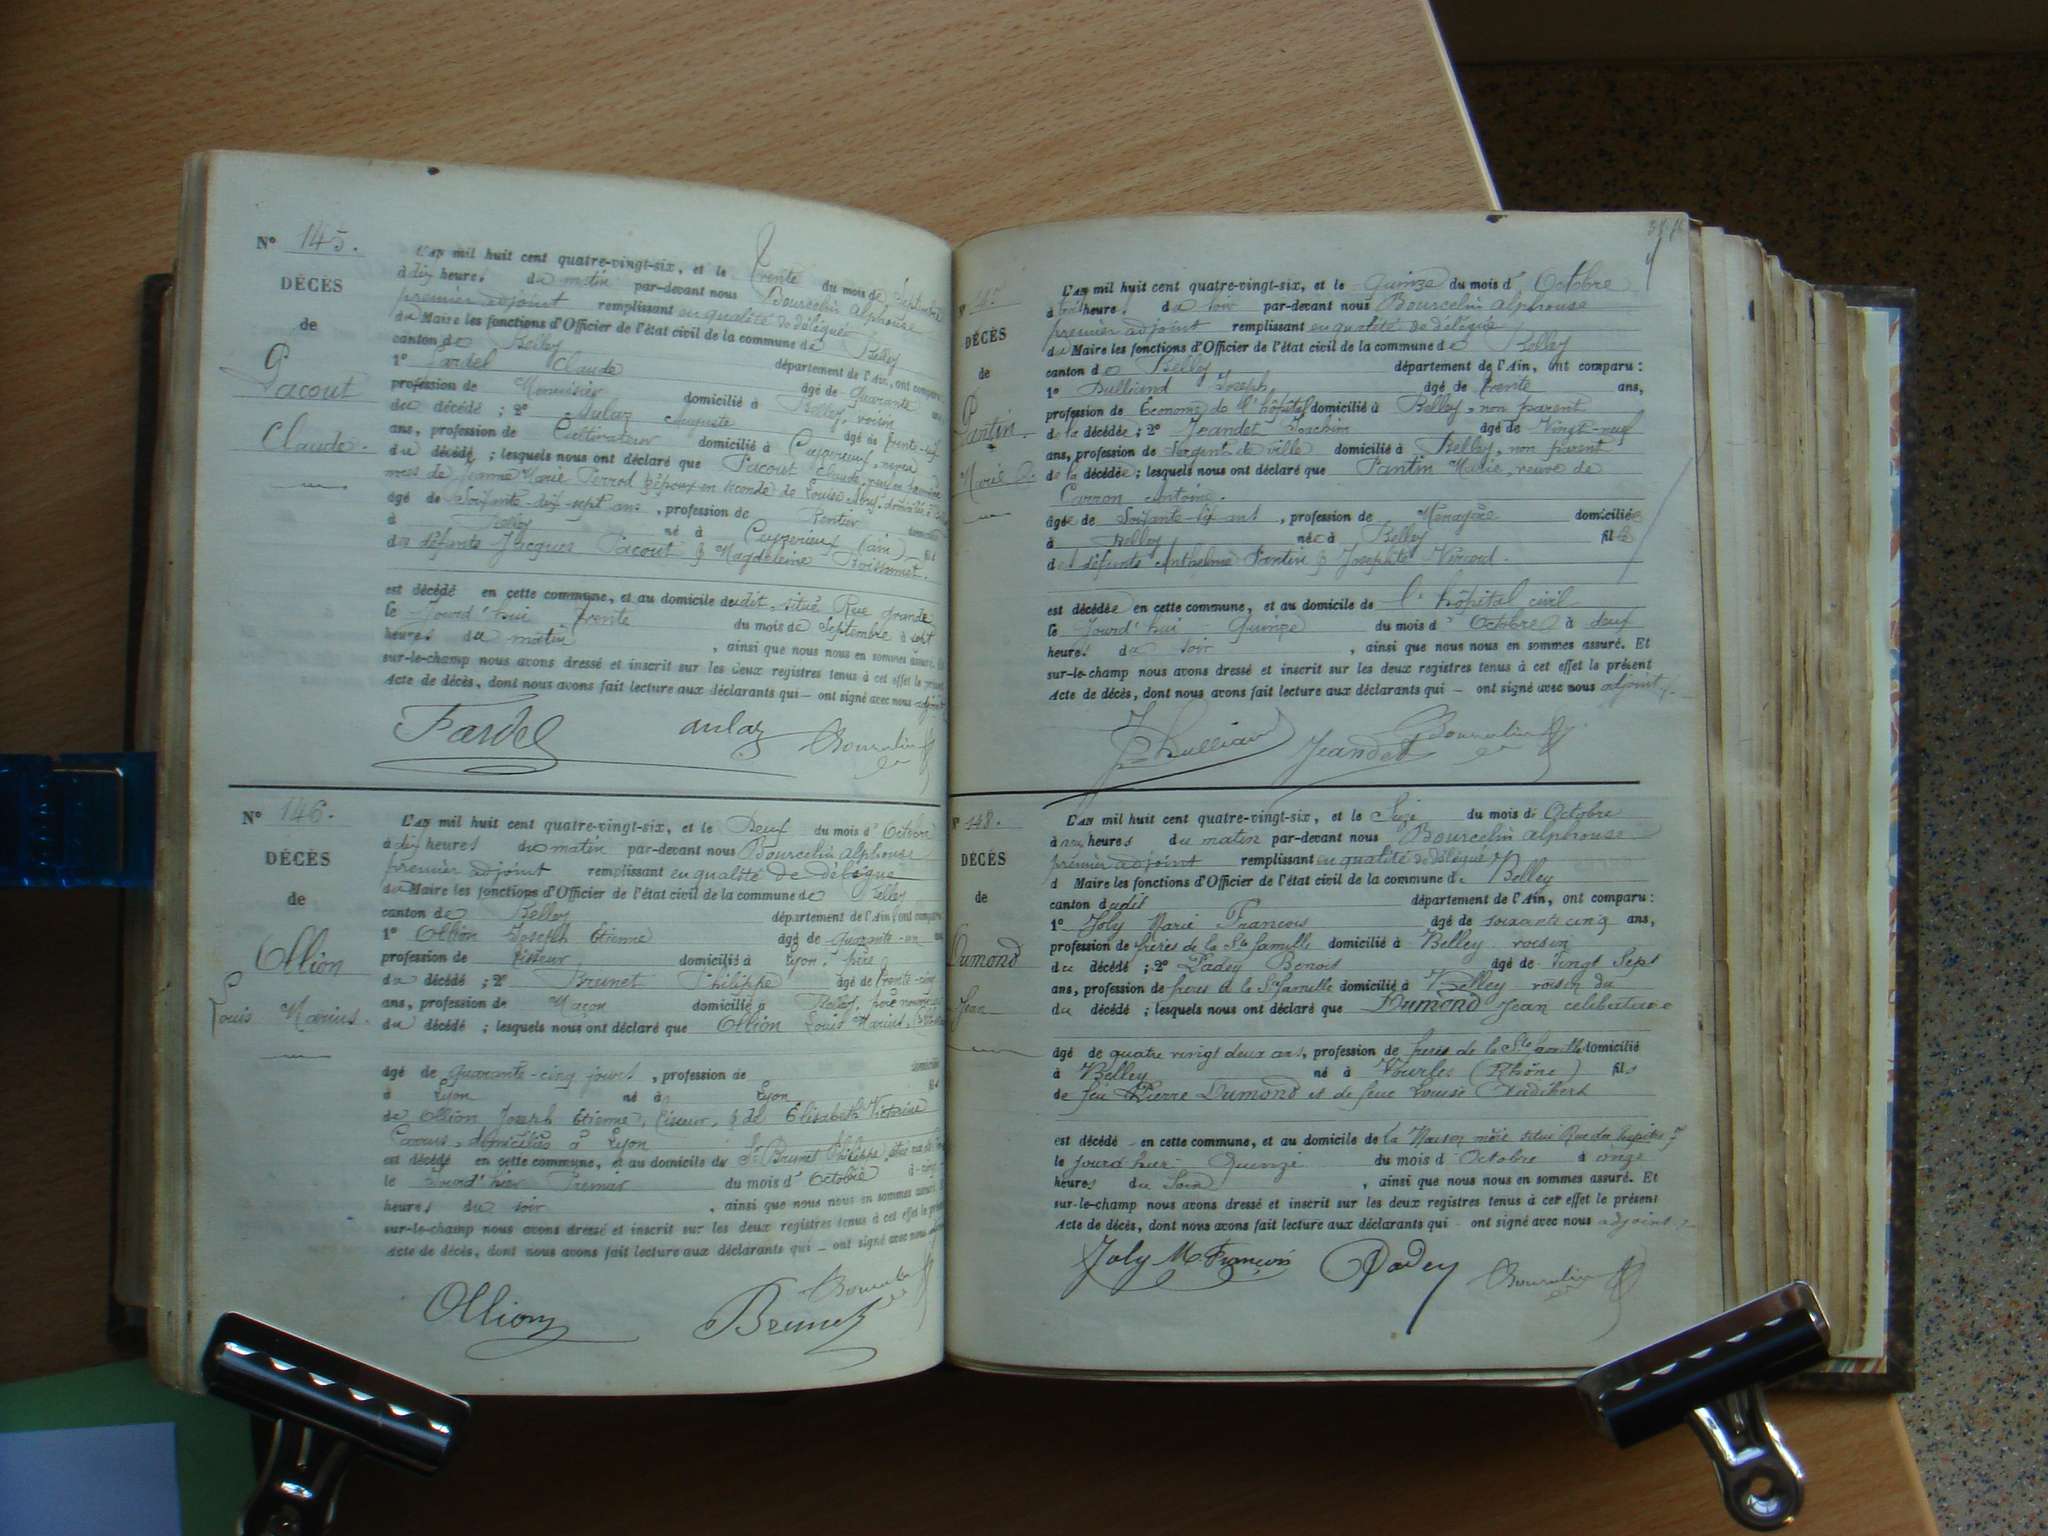 N° 145.
DÉCÈS
de
Pacout
Claude.
L'AN mil huit cent quatre-vingt-six, et le trente du mois de Septembre
à dix heures du matin par-devant nous Bourcelin Alphonse
premier adjoint remplissant en qualité de délégué
du Maire les fonctions d'Officier de l'état civil de la commune de Belley
canton de Belley département de l'Ain, ont comparu:
1° Fardel Claude âgé de Quarante ans,
profession de Menuisier domicilié à Belley, voisin
du décédé; 2° Aulaz Auguste âgé de trente-six
ans, profession de Cultivateur domicilié à Cuzieu, neveu
du décédé; lesquels nous ont déclaré que Pacout Claude, veuf en premières
noces de Jeanne Marie Perrod & époux en seconde de Louise domicilié à
âgé de Soixante-dix-sept ans, profession de Rentier domicilié
à Belley né à Ceyzerieu (ain) fils
des défunts Jacques Pacout & Magdeleine Boissonnet.
est décédé en cette commune, et au domicile dudit, situé Rue grande
le Jourd'hui trente du mois de Septembre à sept
heures du matin, ainsi que nous nous en sommes assuré. Et
sur-le-champ nous avons dressé et inscrit sur les deux registres tenus à cet effet le présent
Acte de décès, dont nous avons fait lecture aux déclarants qui – ont signé avec nous adjoint
Fardel aulaz Bourcelin
N° 146.
DÉCÈS
de
Ollion
Louis Marius.
L'AN mil huit cent quatre-vingt-six, et le Deux du mois d'Octobre
à dix heures du matin par-devant nous Bourcelin Alphonse
premier adjoint remplissant en qualité de délégué
du Maire les fonctions d'Officier de l'état civil de la commune de Belley
canton de Belley département de l'Ain, ont comparu:
1° Ollion Joseph Etienne âgé de Quarante-un ans
profession de tisseur domicilié à Lyon, père
du décédé; 2° Brunet Philippe âgé de trente-cinq
ans, profession de Maçon domicilié à Belley, père nourricier
du décédé; lesquels nous ont déclaré que Ollion Louis Marius,
âgé de Quarante-cinq jours, profession de domicilié
à Lyon né à Lyon fils
de Ollion Joseph Etienne, tisseur, & de Elisabeth Victorine
domiciliés à Lyon
est décédé en cette commune, et au domicile du Sr Brunet Philippe, situé rue
le jourd'hier Premier du mois d'Octobre à
heures du soir, ainsi que nous nous en sommes assuré. Et
sur-le-champ nous avons dressé et inscrit sur les deux registres tenus à cet effet le présent
Acte de décès, dont nous avons fait lecture aux déclarants qui – ont signé avec nous
Bourcelin
Ollion Brunet
N° 147
DÉCÈS
de
Pantin.
Marie
L'AN mil huit cent quatre-vingt-six, et le Quinze du mois d'Octobre
à trois heures du soir par-devant nous Bourcelin Alphonse
premier adjoint remplissant en qualité de délégué
du Maire les fonctions d'Officier de l'état civil de la commune de Belley
canton de Belley département de l'Ain, ont comparu:
1° Dulliand Joseph, âgé de trente ans,
profession de Econome de l'hôpital domicilié à Belley, non parent
de la décédée; 2° Jeandet Joachim âgé de Vingt-neuf
ans, profession de Sergent de ville domicilié à Belley, non parent
de la décédée; lesquels nous ont déclaré que Pantin Marie, veuve de
Carron Antoine.
âgée de Soixante-six ans, profession de Ménagère domiciliée
à Belley née à Belley fille
des défunts Anthelme Pantin & Josephte
est décédée en cette commune, et au domicile de l'hôpital civil
le Jourd'hui Quinze du mois d'Octobre à deux
heures du soir, ainsi que nous nous en sommes assuré. Et
sur-le-champ nous avons dressé et inscrit sur les deux registres tenus à cet effet le présent
Acte de décès, dont nous avons fait lecture aux déclarants qui – ont signé avec nous adjoint
Dulliand Jeandet Bourcelin
N° 148.
DÉCÈS
de
Dumond
Jean
L'AN mil huit cent quatre-vingt-six, et le Seize du mois d'Octobre
à heures du matin par-devant nous Bourcelin alphonse
premier adjoint remplissant en qualité de délégué
d Maire les fonctions d'Officier de l'état civil de la commune de Belley
canton dudit département de l'Ain, ont comparu:
1° Joly Marie François âgé de soixante cinq ans,
profession de frères de la Ste famille domicilié à Belley voisin
du décédé; 2° Padey Benoit âgé de Vingt Sept
ans, profession de frères de la Ste famille domicilié à Belley voisin du
du décédé; lesquels nous ont déclaré que Dumond Jean celibataire
âgé de quatre vingt deux ans, profession de frères de la Ste famille domicilié
à Belley né à Vourles (Rhône) fils
de feu Pierre Dumond et de feue Louise Audibert
est décédé en cette commune, et au domicile de la Maison mère situé Rue des
le jourd'hier Quinze du mois d'Octobre à onze
heures du Soir, ainsi que nous nous en sommes assuré. Et
sur-le-champ nous avons dressé et inscrit sur les deux registres tenus à cet effet le présent
Acte de décès, dont nous avons fait lecture aux déclarants qui – ont signé avec nous adjoint
Joly M. François Padey Bourcelin